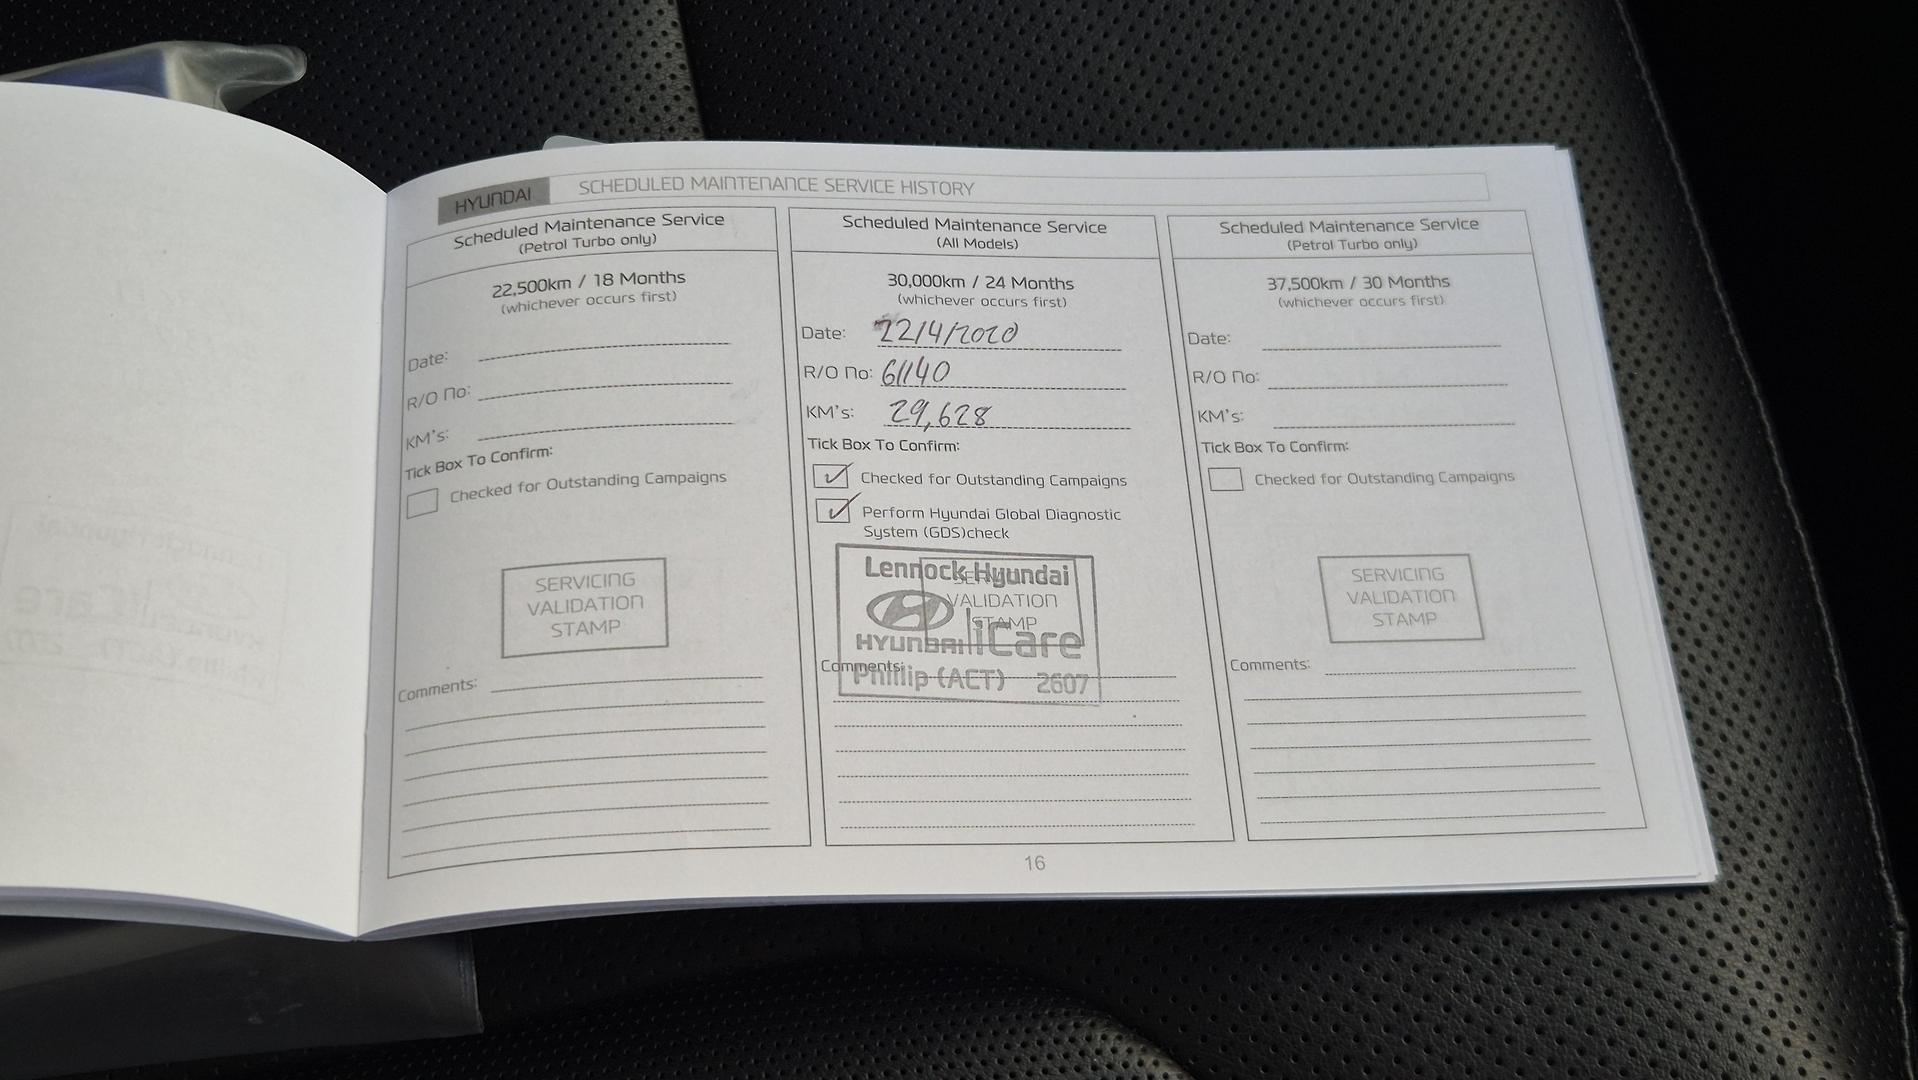 HYUNDAI
SCHEDULED MAINTENANCE SERVICE HISTORY
Scheduled Maintenance Service
(Petrol Turbo only)
22,500km / 18 Months
(whichever occurs first)
Date:
R/O No:
KM's:
Tick Box To Confirm:
Checked for Outstanding Campaigns
SERVICING
VALIDATION
STAMP
Comments:
Scheduled Maintenance Service
(All Models)
30,000km / 24 Months
(whichever occurs first)
Date: 22/4/2020
R/O No: 61140
KM's: 29,628
Tick Box To Confirm:
Checked for Outstanding Campaigns
Perform Hyundai Global Diagnostic
System (GDS)check
Lennock Hyundai
VALIDATION
STAMP
HYUNDAI iCare
Comments:
Phillip (ACT) 2607
Scheduled Maintenance Service
(Petrol Turbo only)
37,500km / 30 Months
(whichever occurs first)
Date:
R/O No:
KM's:
Tick Box To Confirm:
Checked for Outstanding Campaigns
SERVICING
VALIDATION
STAMP
Comments:
16